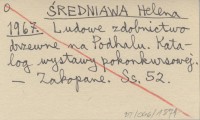 ŚREDNIAWA Helena
1967. Ludowe zdobnictwo
drzewne na Podhalu. Kata-
log wystawy pokonkursowej.
– Zakopane. Ss. 52.